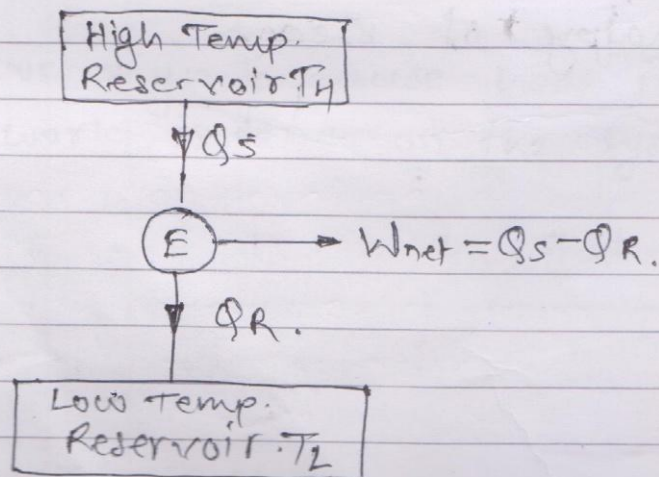 High Temp.
Reservoir TH
QS
E
Wnet = QS - QR.
QR.
Low Temp.
Reservoir. TL